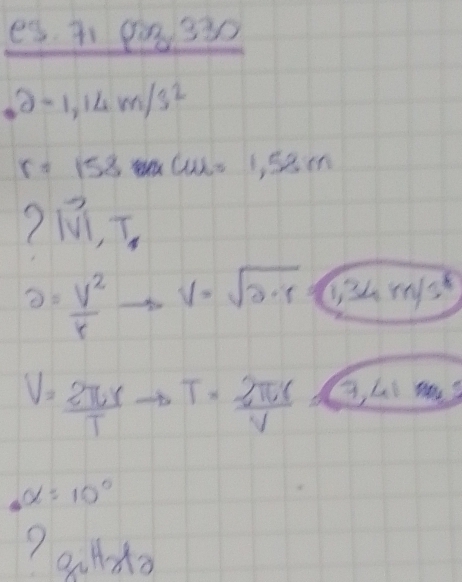 es. 71 pag 330
a = 1,14 m/s²
r = 158 cm = 1,58 m
? |v⃗|, T
a = v²/r → v = √a·r = 1,34 m/s
v = 2πr/T → T = 2πr/v = 7,41 s
α = 10°
?